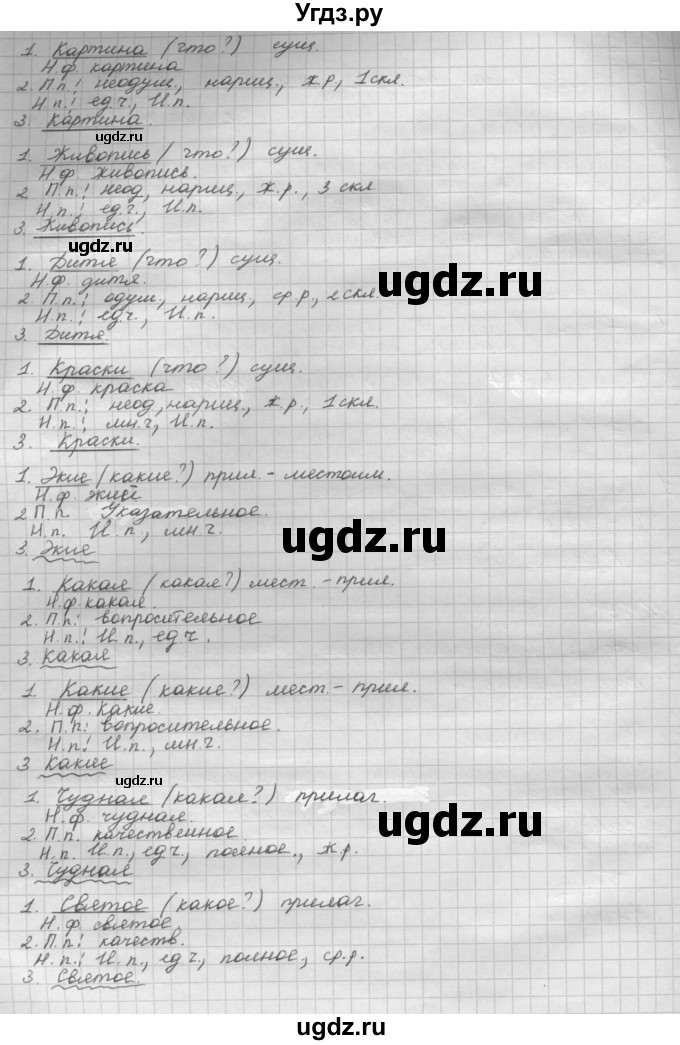 Угдз.ру
1. Картина (что?) сущ.
Н.ф. картина
2. П.п.: неодуш., нариц., ж.р., 1 скл.
Н.п.: ед.ч., И.п.
3. Картина.
ugdz.ru
1. Живопись (что?) сущ.
Н.ф. живопись.
2 П.п.: неод, нариц., ж.р., 3 скл.
Н.п.: ед.ч., И.п.
3. Живопись.
ugdz.ru
1. Дитя (что?) сущ.
Н.ф. дитя.
2. П.п.: одуш, нариц., ср.р., 2 скл.
Н.п.: ед.ч., И.п.
3. Дитя.
ugdz.ru
1. Краски (что?) сущ.
Н.ф. краска
2. П.п.: неод, нариц., ж.р, 1 скл.
Н.п.: мн.ч, И.п.
3. Краски.
1. Экие (какие?) прил. - местоим.
Н.ф.
2 П.п. Указательное.
Н.п. И.п., мн.ч.
3. Экие
ugdz.ru
1. Какая (какая?) мест. - прил.
Н.ф какая.
2. П.п: вопросительное
Н.п.: И.п., ед.ч.
3. Какая
ugdz.ru
1. Какие (какие?) мест. - прил.
Н.ф. Какие.
2. П.п: вопросительное.
Н.п: И.п., мн.ч.
3 Какие
ugdz.ru
1. Чудная (какая?) прилаг.
Н.ф. чудная.
2. П.п. качественное
Н.п. И.п., ед.ч., полное., ж.р.
3. Чудная
ugdz.ru
1. Святое (какое?) прилаг.
Н.ф святое
2. П.п: качеств.
Н.п.: И.п., ед.ч., полное, ср.р.
3. Святое.
ugdz.ru
ugdz.ru